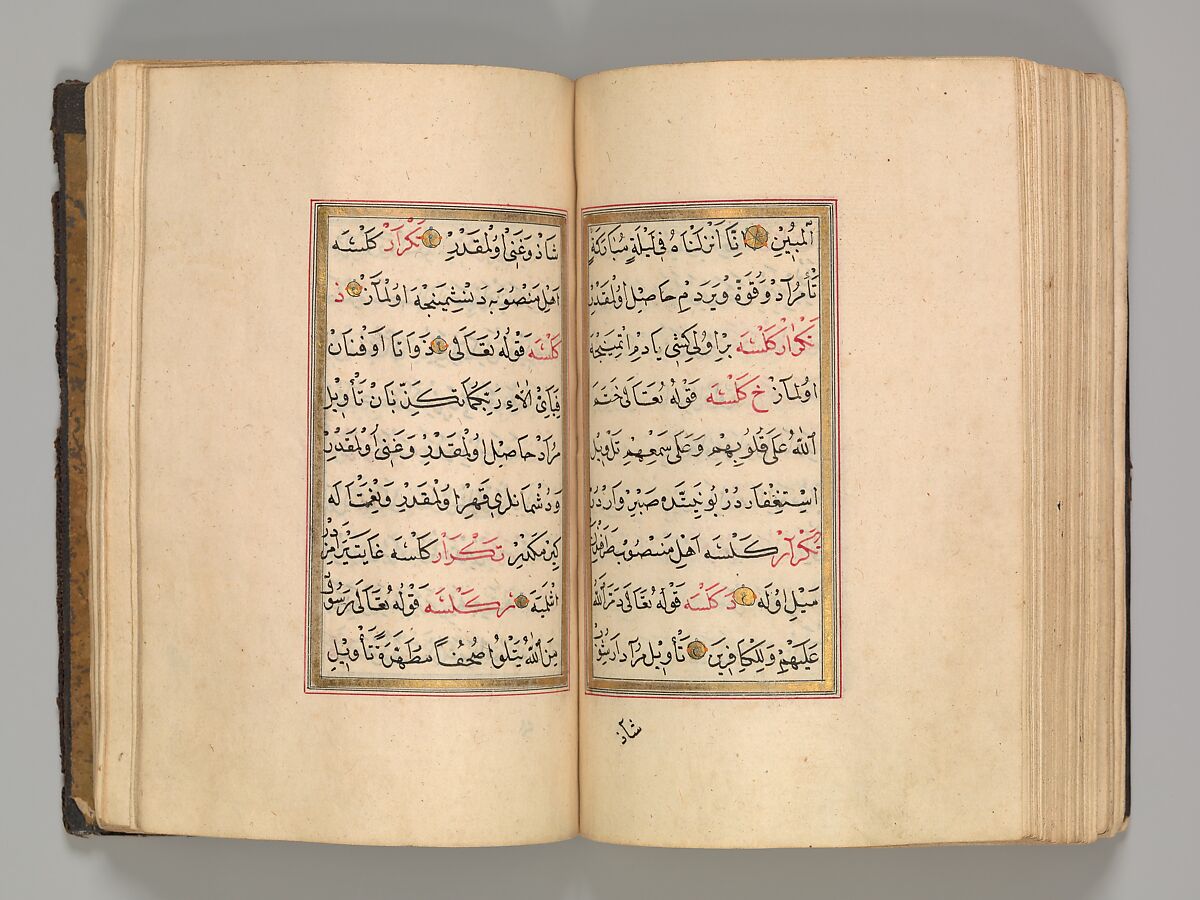 الْمُبِينِ اِنَّا اَنْزَلْنَاهُ فِى لَيْلَةٍ مُبَارَكَةٍ
تَأْ مُرَآدْ وَقُوَّةْ وَيَرَدَمِ حَاصِلْ اُولْمَقْدَرْ
تَكْرَارْ كَلْسَه بِرْ اُولُ كِشِى يَادِمْ اِتْمِينْجَه
اُولْمَازْ خ كَلْسَه قَوْلُهُ تَعَالَى خَتَمَ
اللهُ عَلَى قُلُوبِهِمْ وَعَلَى سَمْعِهِمْ تَأْوِيلْ
اِسْتِغْفَارْ دُرْ بُو نِيَّتْدَه صَبِرْ وَارْدُرْ
تَكْرَآرْ كَلْسَه اَهْلِ مَنْصُوبْ طَرَفِنْدَنْ
مَيْلِ اُولَه دَ كَلْسَه قَوْلُهُ تَعَالَى دَمَّرَ اللهُ
عَلَيْهِمْ وَلِلْكَافِرِينَ تَأْوِيلْ مُرَآدْ اَرَسُونْ
شَاذْ
شَاذْ وَغَنِى اُولْمَقْدَرْ تَكْرَآرْ كَلْسَه
اَهْلِ مَنْصُوبَه دَنِشْمِينْجَه اُولْمَآزْ ذ
كَلْسَه قَوْلُهُ تَعَالَى ذَوَاتَا اَفْنَانْ
فَبِاَىِّ اٰلَاءِ رَبِّكُمَا تُكَذِّبَانْ تَأْوِيلْ
مُرَادْ حَاصِلْ اُولْمَقْدَرْ وَغَنِى اُولْمَقْدَرْ
وَدُشْمَانْلَرِى قَهِرْ اُولْمَقْدَرْ وَنِعْمَتَا لَه
كِيرْمَكْدِرْ تَكْرَارْ كَلْسَه غَايَتْ تِيزْ اَمِرْدُرْ
اِتْلِيَه ر كَلْسَه قَوْلُهُ تَعَالَى رَسُولٌ
مِنَ اللهِ يَتْلُوا صُحُفاً مُطَهَّرَةً تَأْوِيلْ